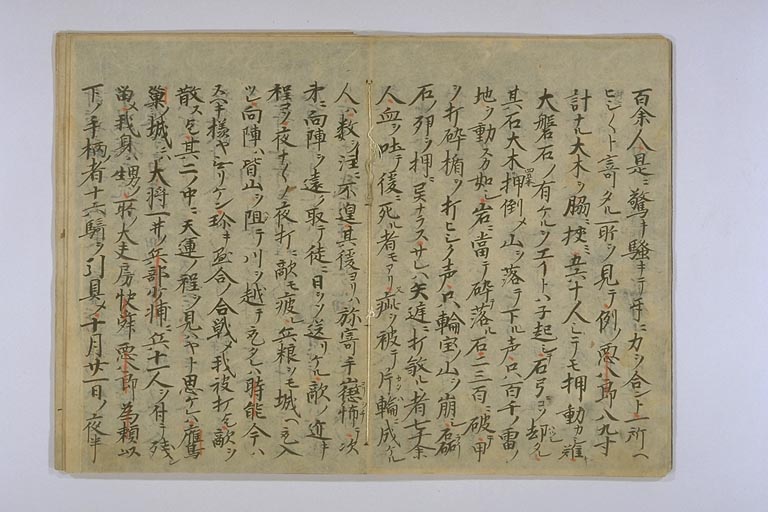 百余人是ニ驚キ騒キテ手ニ力ヲ合ント一所ヘ
ヒシ〱ト寄タル所ヲ見テ例ノ悪八郎八九寸
計ナル大木ヲ脇ニ挟ミ五六十人シテモ押動カシ難
大磐石ノ有ケルヲエイトハ子起シテ石弓コソ却タル
其石大木押倒メ山ヲ落テ下ル声ハ百千ノ雷ノ
地ヲ動スカ如シ岩ニ當テ碎落ル石二三百ニ破甲
ヲ打碎楯ヲ打ヒシク声ハ輪宝ノ山ヲ崩シ磊
石ノ卵ヲ押ニ異ナラスサレハ矢遅ニ打殺ル者七千余
人血ヲ吐テ後ニ死ル者モアリ疵ヲ被テ片輪ニ成ケル
人ハ数ヲ注ニ不遑其後ヨリハ弥寄手懲怖テ次
第ニ向陣ヲ遠ク取テ徒ニ日ヲソ送リケル敵ノ近キ
程コソ夜ナ〱ノ夜打ニ敵モ疲レ兵粮ヲモ城ヘ入
ツレ向陣ハ皆山ヲ阻テ川ヲ越テケレハ時能今ハ
スヘキ様ヤ无リケン珍キ合ノ合戦メ我被打歟敵ヲ
散スカ其二ノ中ニ天運ノ程ヲ見ハヤト思ケレハ鷹
巣ノ城ニハ大将一井ノ兵部少輔ニ兵十一人ヲ付テ残シ
留メ我身ハ甥ノ所ノ大夫房快舜悪八郎為頼以
下ノ手柄者十六騎ヲ引具メ十月廿一日ノ夜半